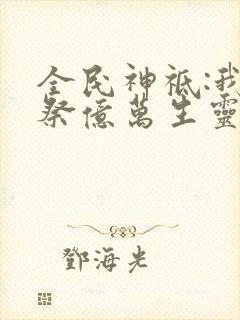 全民神祇:我
祭億萬生靈
鄧海光